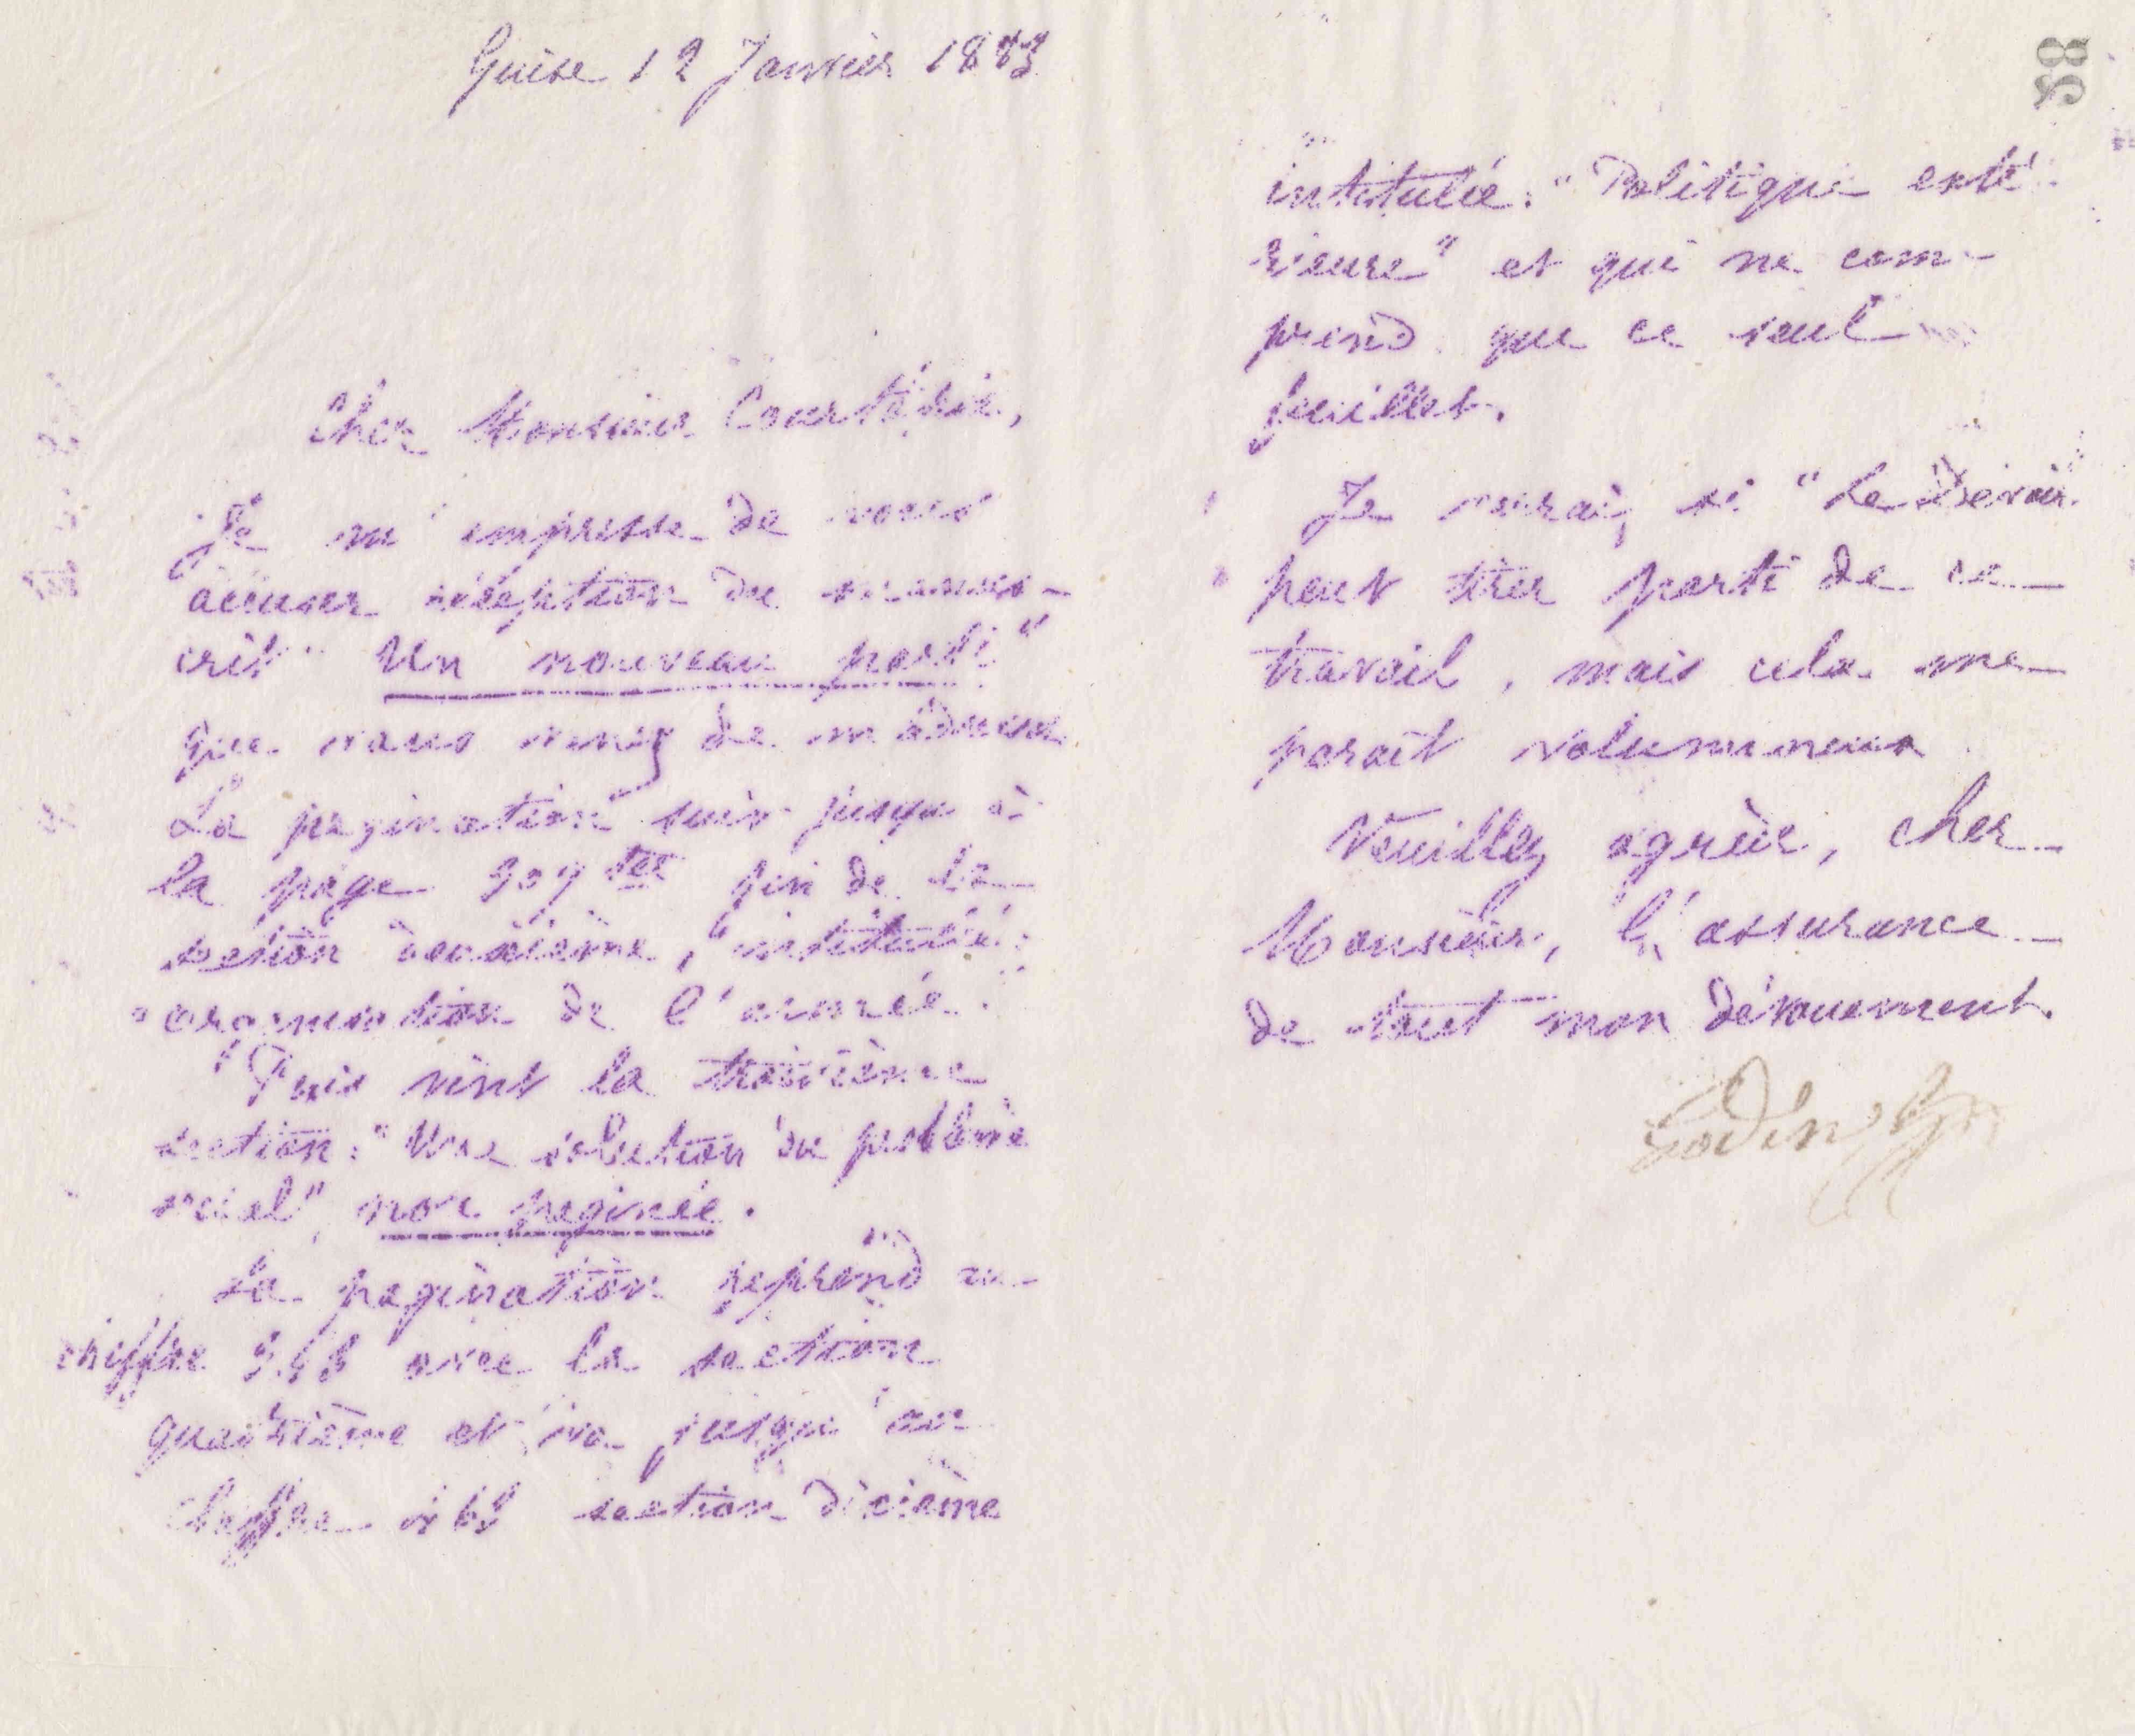 Guise 12 Janvier 1883
Cher Monsieur Courtépée,
Je m'empresse de vous
accuser réception du manus-
crit "Un nouveau parti"
que vous venez de m'adresser
La pagination suit jusqu'à
la page 909 ter fin de la
section deuxième, "intitulée:
"organisation de l'armée."
Puis vint la troisième
section: "Une solution du problème
social", non paginée.
La pagination reprend au
chiffre avec la section
quatrième et va jusqu'au
chiffre section dixième
58
intitulée: "Politique exté-
rieure" et qui ne com-
prend que ce seul
feuillet.
Je verrai, si "Le Devoir"
peut tirer parti de ce
travail, mais cela me
paraît volumineux
Veuillez agréer, cher
Monsieur, l'assurance
de tout mon dévouement.
Godin